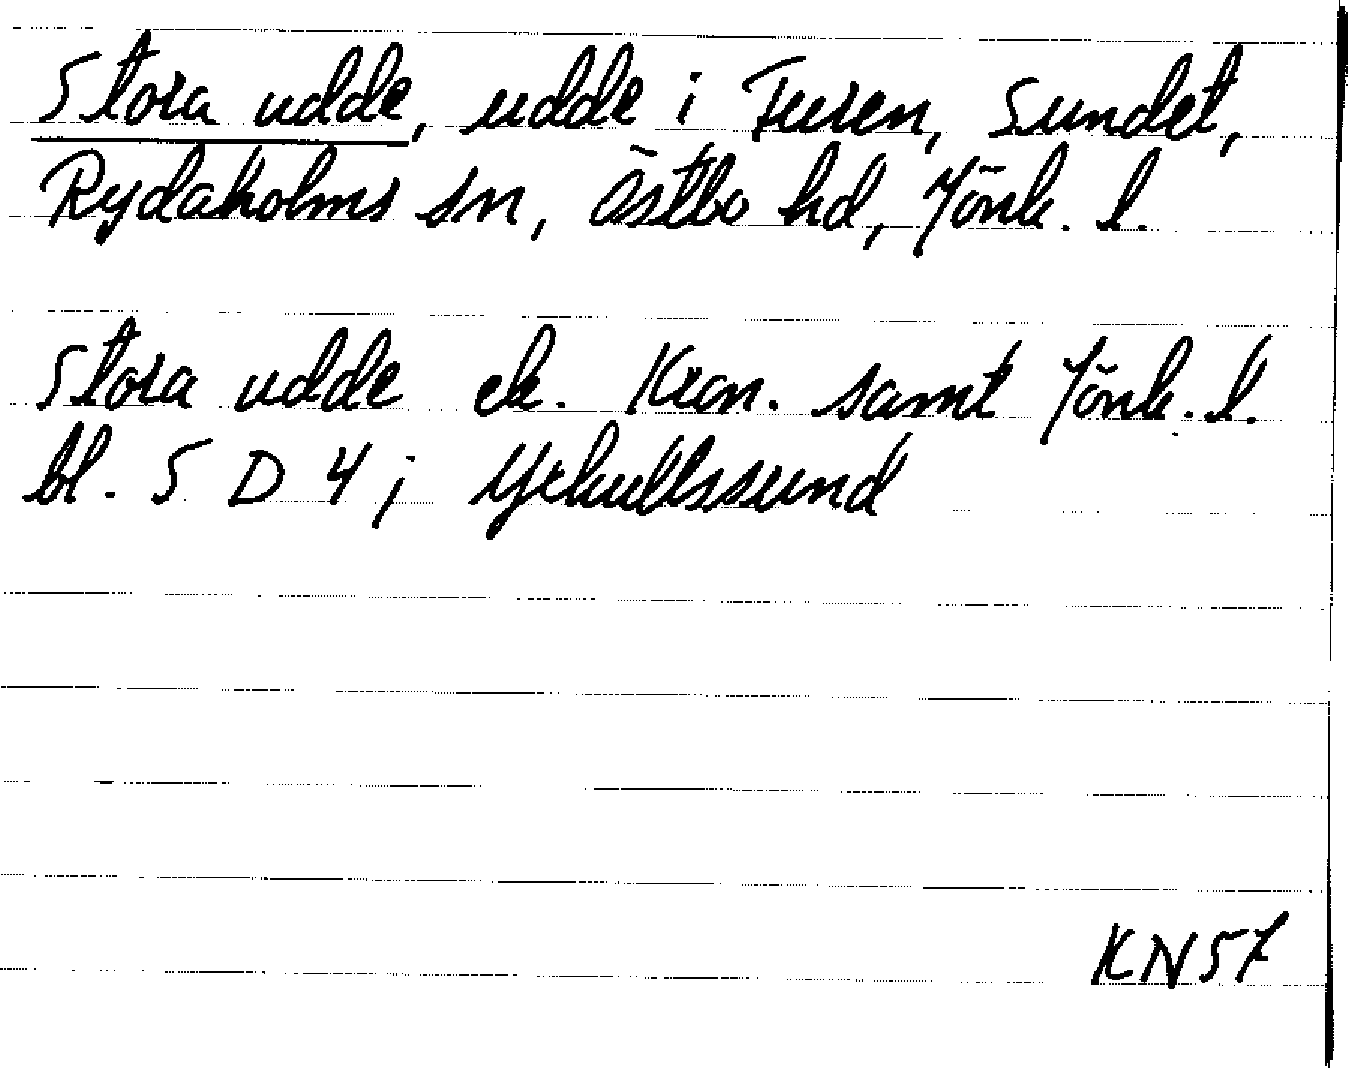 Stora udde, udde i Furen, Sundet,
Rydaholms sn, Östbo hd, Jönk. l.
Stora udde ek. Kron. samt Jönk. l.
bl. 5 D 4; Yxkullssund
KN57